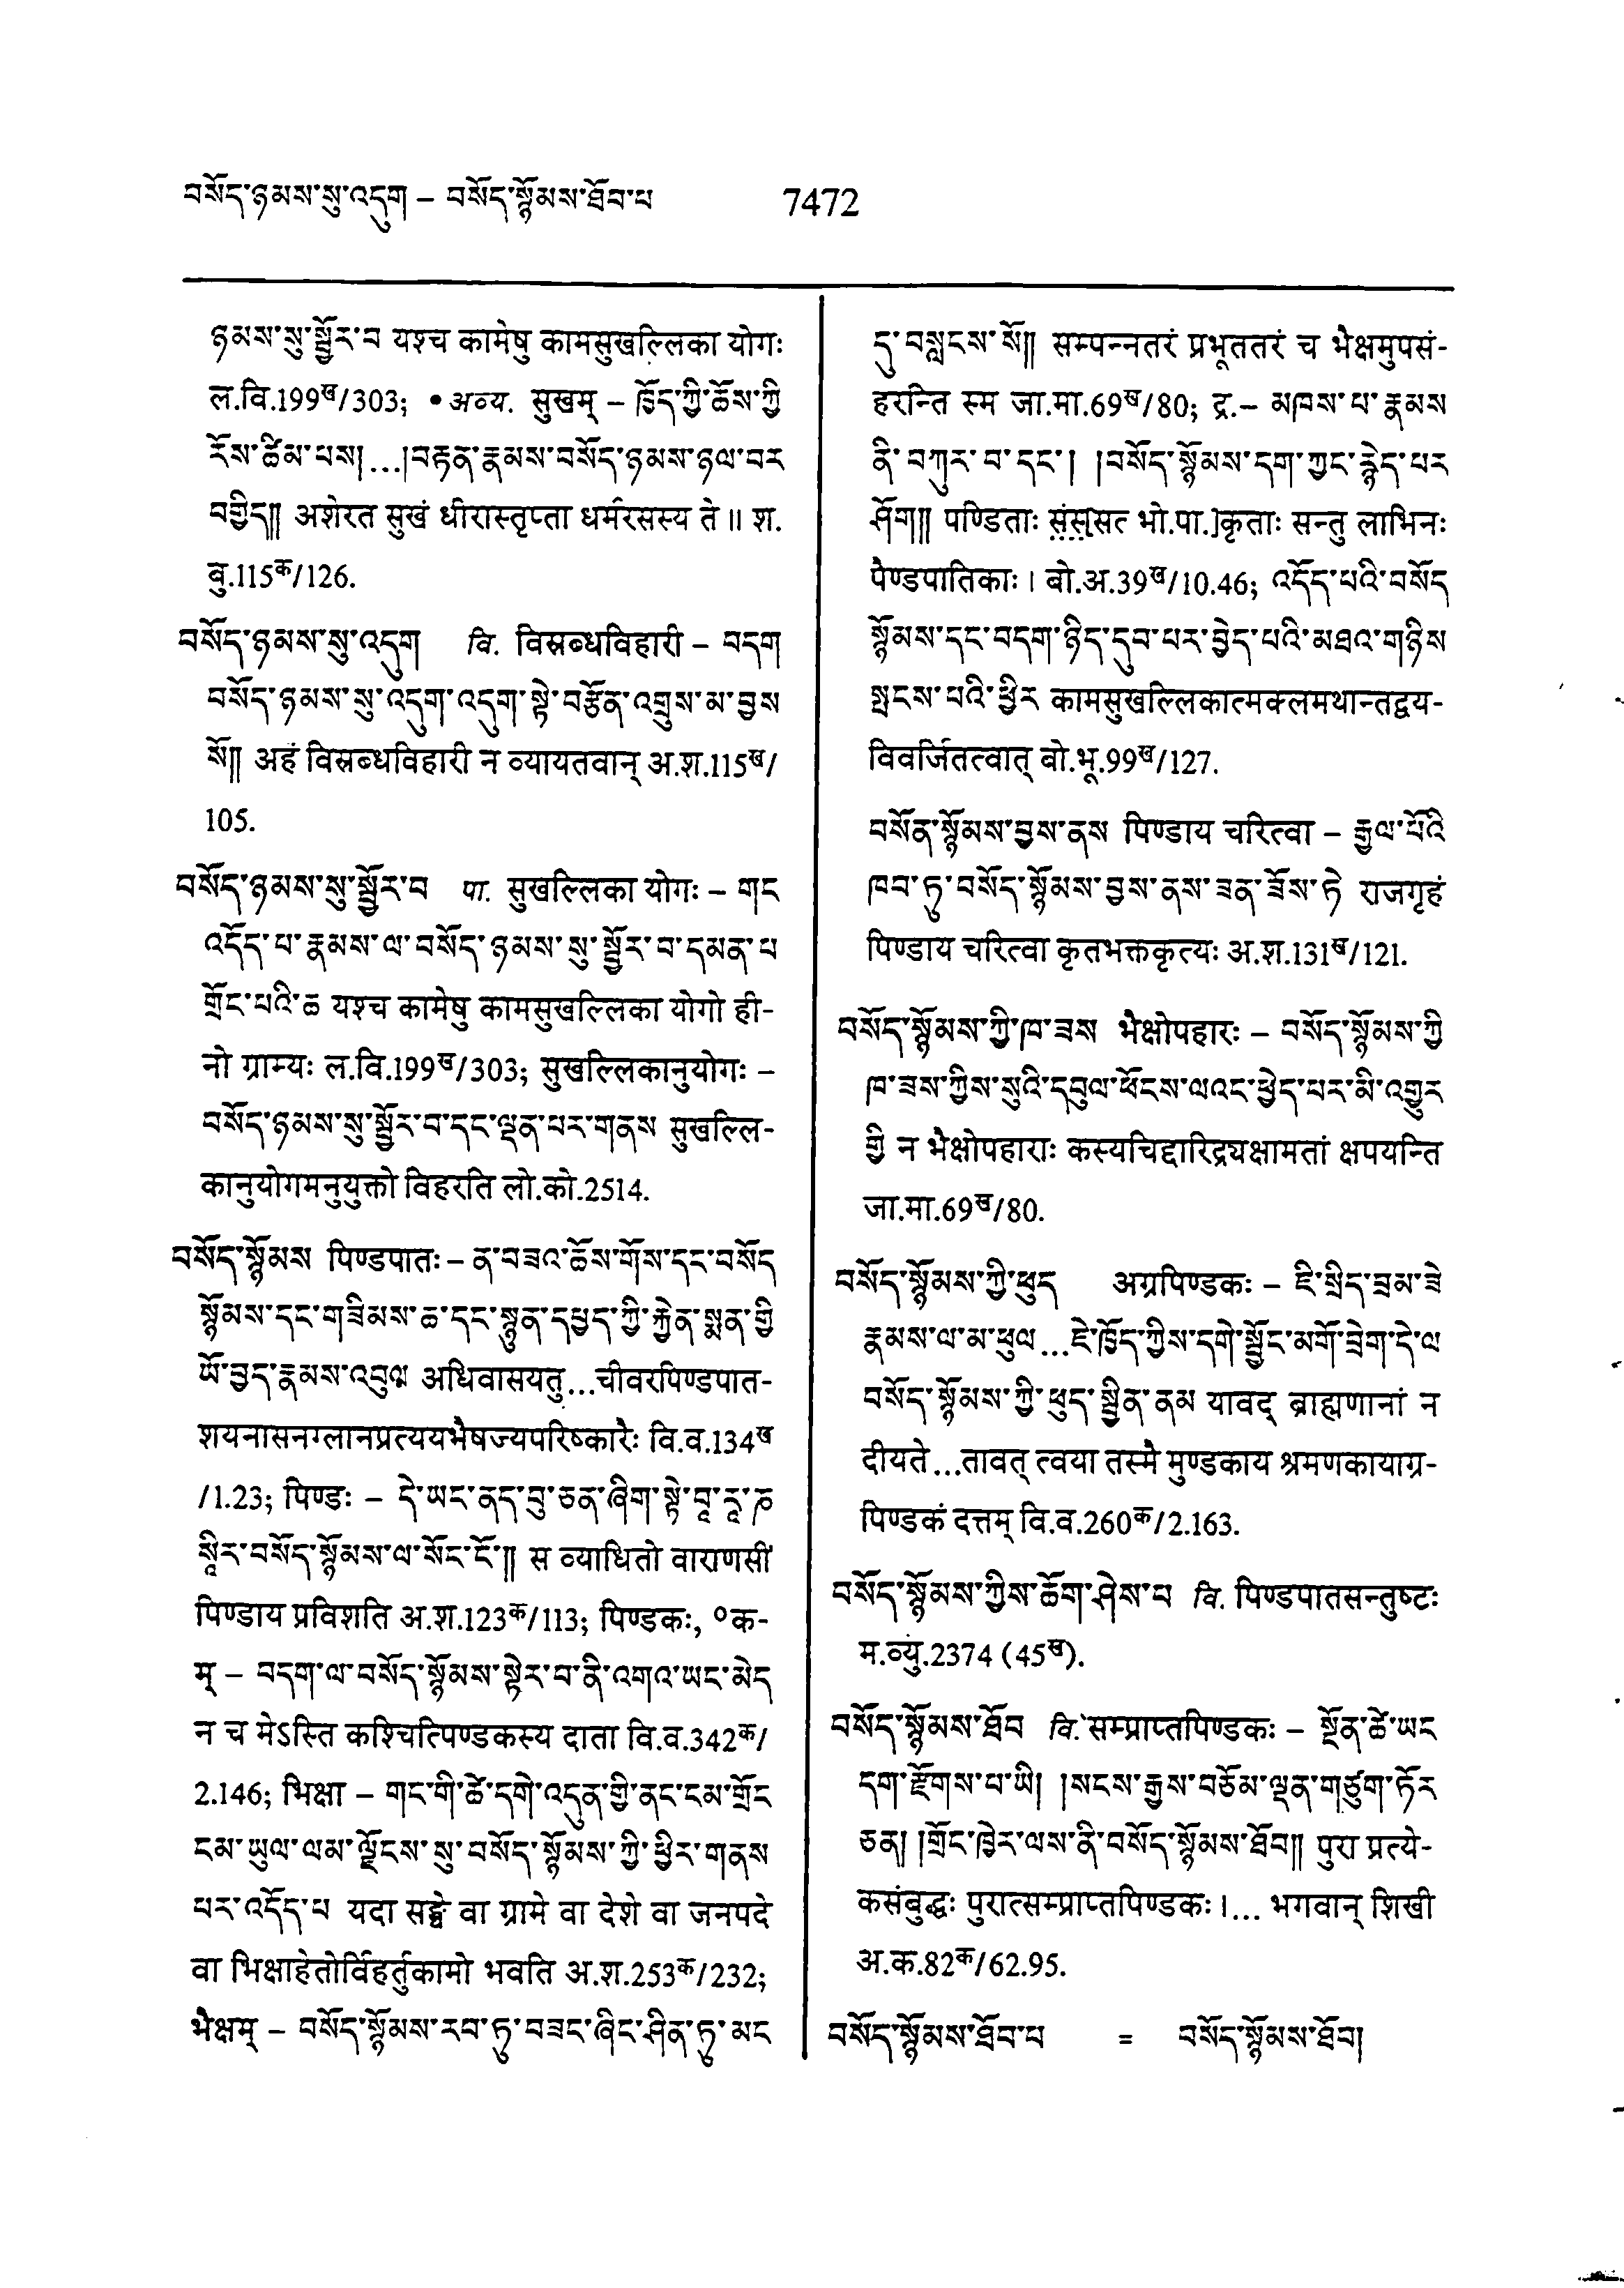 བསོད་ཉམས་སུ་འདུག – བསོད་སྙོམས་ཐོབ་པ 7472
ཉམས་སུ་སྦྱོར་བ यश्च कामेषु कामसुखल्लिका योगः
ल.वि.199ख/303; • अव्य. सुखम् – ཁྱོད་ཀྱི་ཆོས་ཀྱི
རོས་ཚིམ་པས། ...།བརྟན་རྣམས་བསོད་ཉམས་ཉལ་བར
བགྱིད།། अशेरत सुखं धीरास्तृप्ता धर्मरसस्य ते ॥ श.
बु.115क/126.
བསོད་ཉམས་སུ་འདུག वि. विस्रब्धविहारी – བདག
བསོད་ཉམས་སུ་འདུག་འདུག་སྟེ་བརྩོན་འགྲུས་མ་བྱས
སོ།། अहं विस्रब्धविहारी न व्यायतवान् अ.श.115ख/
105.
བསོད་ཉམས་སུ་སྦྱོར་བ पा. सुखल्लिका योगः – གང
འདོད་པ་རྣམས་ལ་བསོད་ཉམས་སུ་སྦྱོར་བ་དམན་པ
གྲོང་པའི་ཆ यश्च कामेषु कामसुखल्लिका योगो ही-
नो ग्राम्यः ल.वि.199ख/303; सुखल्लिकानुयोगः –
བསོད་ཉམས་སུ་སྦྱོར་བ་དང་ལྡན་པར་གནས सुखल्लि-
कानुयोगमनुयुक्तो विहरति लो.को.2514.
བསོད་སྙོམས पिण्डपातः – ན་བཟའ་ཆོས་གོས་དང་བསོད
སྙོམས་དང་གཟིམས་ཆ་དང་སྙུན་དཔྱད་ཀྱི་རྐྱེན་སྨན་གྱི
ཡོ་བྱད་རྣམས་འབུལ अधिवासयतु...चीवरपिण्डपात-
शयनासनग्लानप्रत्ययभैषज्यपरिष्कारैः वि.व.134ख
/1.23; पिण्डः – དེ་ཡང་ནད་བུ་ཅན་ཞིག་སྟེ་བཱ་རཱ་ཎ
སཱིར་བསོད་སྙོམས་ལ་སོང་ངོ་།། स व्याधितो वाराणसीं
पिण्डाय प्रविशति अ.श.123क/113; पिण्डकः, ०क-
म् – བདག་ལ་བསོད་སྙོམས་སྟེར་བ་ནི་འགའ་ཡང་མེད
न च मेऽस्ति कश्चित्पिण्डकस्य दाता वि.व.342क/
2.146; भिक्षा – གང་གི་ཚེ་དགེ་འདུན་གྱི་ནང་ངམ་གྲོང
ངམ་ཡུལ་ལམ་ལྗོངས་སུ་བསོད་སྙོམས་ཀྱི་ཕྱིར་གནས
པར་འདོད་པ यदा सङ्घे वा ग्रामे वा देशे वा जनपदे
वा भिक्षाहेतोर्विहर्तुकामो भवति अ.श.253क/232;
भैक्षम् – བསོད་སྙོམས་རབ་ཏུ་བཟང་ཞིང་ཤིན་ཏུ་མང
དུ་བསླངས་སོ།། सम्पन्नतरं प्रभूततरं च भैक्षमुपसं-
हरन्ति स्म जा.मा.69ख/80; द्र.– མཁས་པ་རྣམས
ནི་བཀུར་བ་དང་། །བསོད་སྙོམས་དག་ཀྱང་རྙེད་པར
ཤོག།། पण्डिताः संस्[सत भो.पा.]कृताः सन्तु लाभिनः
पैण्डपातिकाः । बो.अ.39ख/10.46; འདོད་པའི་བསོད
སྙོམས་དང་བདག་ཉིད་དུབ་པར་བྱེད་པའི་མཐའ་གཉིས
སྤངས་པའི་ཕྱིར कामसुखल्लिकात्मक्लमथान्तद्वय-
विवर्जितत्वात् बो.भू.99ख/127.
བསོན་སྙོམས་བྱས་ནས पिण्डाय चरित्वा – རྒྱལ་པོའི
ཁབ་ཏུ་བསོད་སྙོམས་བྱས་ནས་ཟན་ཟོས་ཏེ राजगृहं
पिण्डाय चरित्वा कृतभक्तकृत्यः अ.श.131ख/121.
བསོད་སྙོམས་ཀྱི་ཁ་ཟས भैक्षोपहारः – བསོད་སྙོམས་ཀྱི
ཁ་ཟས་ཀྱིས་སུའི་དབུལ་ཕོངས་ལའང་ཕྱེད་པར་མི་འགྱུར
གྱི न भैक्षोपहाराः कस्यचिद्दारिद्र्यक्षामतां क्षपयन्ति
जा.मा.69ख/80.
བསོད་སྙོམས་ཀྱི་ཕུད अग्रपिण्डकः – ཇི་སྲིད་བྲམ་ཟེ
རྣམས་ལ་མ་ཕུལ...ཇེ་ཁྱོད་ཀྱིས་དགེ་སྦྱོང་མགོ་བྲེག་དེ་ལ
བསོད་སྙོམས་ཀྱི་ཕུད་སྦྱིན་ནམ यावद् ब्राह्मणानां न
दीयते...तावत् त्वया तस्मै मुण्डकाय श्रमणकायाग्र-
पिण्डकं दत्तम् वि.व.260क/2.163.
བསོད་སྙོམས་ཀྱིས་ཆོག་ཤེས་པ वि. पिण्डपातसन्तुष्टः
म.व्यु.2374 (45ख).
བསོད་སྙོམས་ཐོབ वि. सम्प्राप्तपिण्डकः – སྔོན་ཚེ་ཡང
དག་རྫོགས་པ་ཡི། །སངས་རྒྱས་བཅོམ་ལྡན་གཙུག་ཏོར
ཅན། །གྲོང་ཁྱེར་ལས་ནི་བསོད་སྙོམས་ཐོབ།། पुरा प्रत्ये-
कसंबुद्धः पुरात्सम्प्राप्तपिण्डकः ।... भगवान् शिखी
अ.क.82क/62.95.
བསོད་སྙོམས་ཐོབ་པ = བསོད་སྙོམས་ཐོབ།